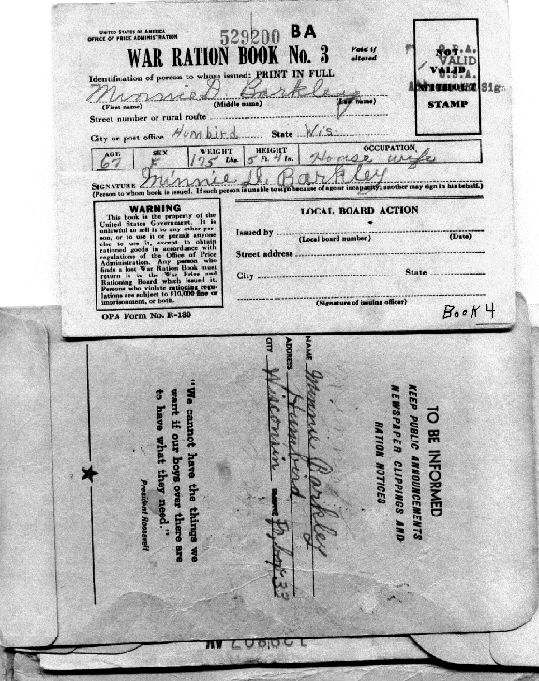 UNITED STATES OF AMERICA
OFFICE OF PRICE ADMINISTRATION
529200 BA
WAR RATION BOOK No. 3
Void if
altered
NOT
VALID
WITHOUT
STAMP
VALID
Identification of person to whom issued: PRINT IN FULL
Minnie D. Barkley
(First name) (Middle name) (Last name)
Street number or rural route
City or post office Humbird State Wis.
AGE SEX WEIGHT HEIGHT OCCUPATION
67 F 175 Lbs. 5 Ft. 4 In. House wife
SIGNATURE Minnie D. Barkley
(Person to whom book is issued. If such person is unable to sign because of age or incapacity, another may sign in his behalf.)
WARNING
This book is the property of the
United States Government. It is
unlawful to sell it to any other per-
son, or to use it or permit anyone
else to use it, except to obtain
rationed goods in accordance with
regulations of the Office of Price
Administration. Any person who
finds a lost War Ration Book must
return it to the War Price and
Rationing Board which issued it.
Persons who violate rationing regu-
lations are subject to $10,000 fine or
imprisonment, or both.
LOCAL BOARD ACTION
Issued by
(Local board number) (Date)
Street address
City State
(Signature of issuing officer)
OPA Form No. R-130
Book 4
TO BE INFORMED
KEEP PUBLIC ANNOUNCEMENTS
NEWSPAPER CLIPPINGS AND
RATION NOTICES
NAME Minnie Barkley
ADDRESS Humbird
CITY Wisconsin
"We cannot have the things we
want if our boys over there are
to have what they need."
President Roosevelt